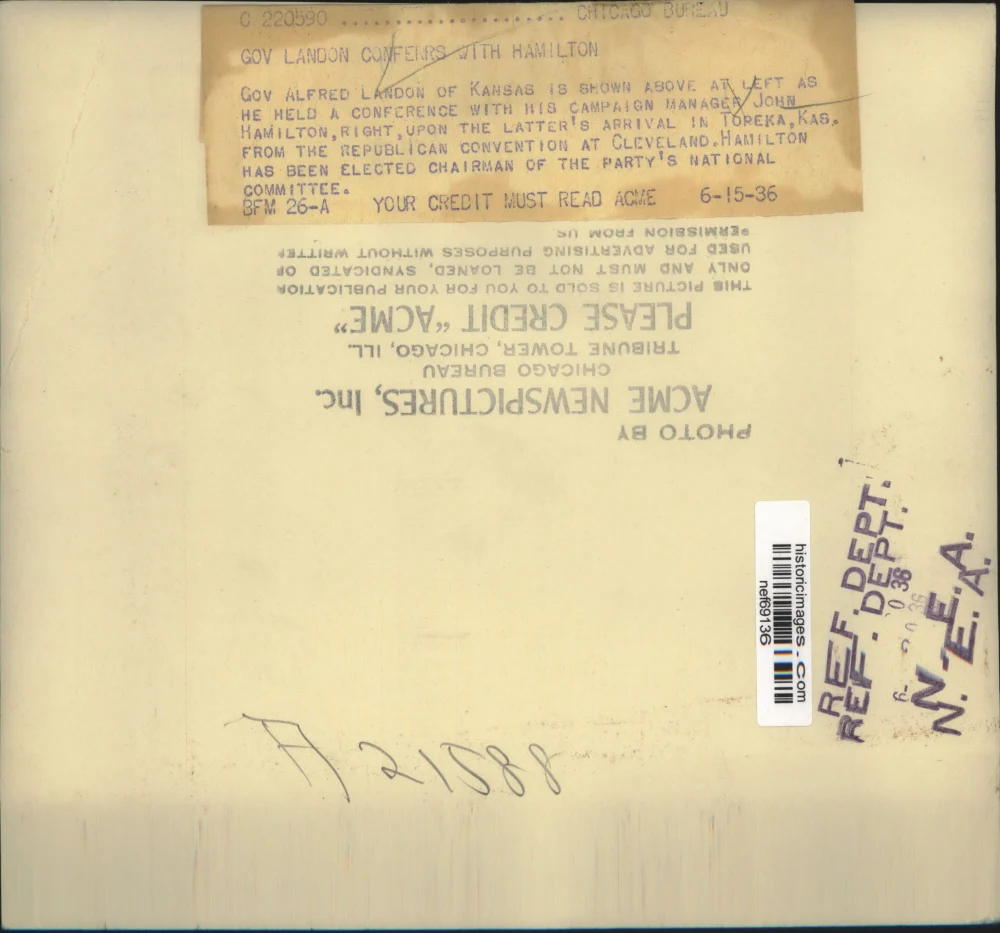 C 220590 ...................... CHICAGO BUREAU
GOV LANDON CONFERRS WITH HAMILTON
GOV ALFRED LANDON OF KANSAS IS SHOWN ABOVE AT LEFT AS
HE HELD A CONFERENCE WITH HIS CAMPAIGN MANAGER JOHN
HAMILTON, RIGHT, UPON THE LATTER'S ARRIVAL IN TOPEKA, KAS.
FROM THE REPUBLICAN CONVENTION AT CLEVELAND. HAMILTON
HAS BEEN ELECTED CHAIRMAN OF THE PARTY'S NATIONAL
COMMITTEE.
BFM 26-A YOUR CREDIT MUST READ ACME 6-15-36
PHOTO BY
ACME NEWSPICTURES, Inc.
CHICAGO BUREAU
TRIBUNE TOWER, CHICAGO, ILL.
PLEASE CREDIT "ACME"
THIS PICTURE IS SOLD TO YOU FOR YOUR PUBLICATION
ONLY AND MUST NOT BE LOANED, SYNDICATED OR
USED FOR ADVERTISING PURPOSES WITHOUT WRITTEN
PERMISSION FROM US
historicimages.com
nef69136
REF. DEPT.
REF. DEPT.
N. E. A.
N. E. A.
A 21588